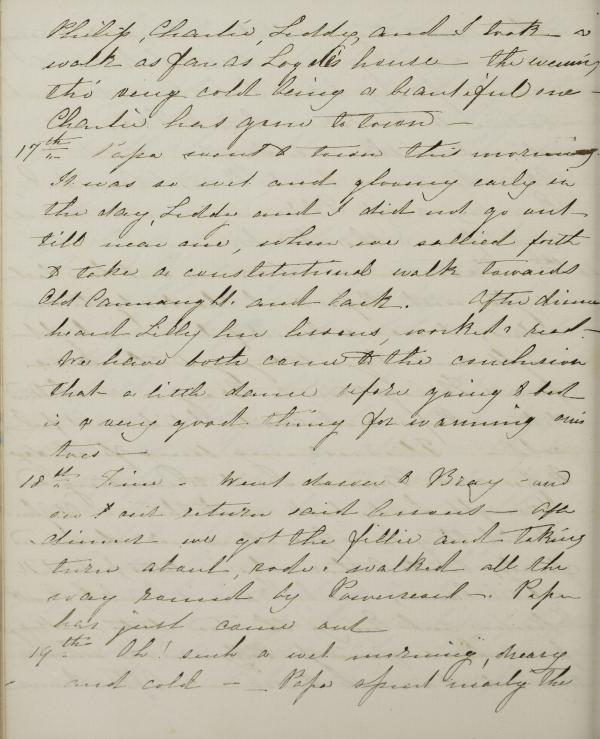 Philip, Charlie, Liddy, and I took a
walk as far as Logan's house - the evening
tho' very cold being a beautiful one -
Charlie has gone to town -
17th Papa went to town this morning.
It was so wet and gloomy early in
the day, Liddy and I did not go out
till near one, when we sallied forth
to take a constitutional walk towards
Old Connaught and back. After dinner
heard Lilly her lessons, worked & read -
We have both come to the conclusion
that a little dance before going to bed
is a very good thing for warming one's
toes -
18th Fine - Went down to Bray - and
on our return said lessons - After
dinner we got the fillie and taking
turn about, rode & walked all the
way round by Powerscourt -. Papa
has just come out
19th Oh! such a wet morning, dreary
and cold - Papa spent nearly the